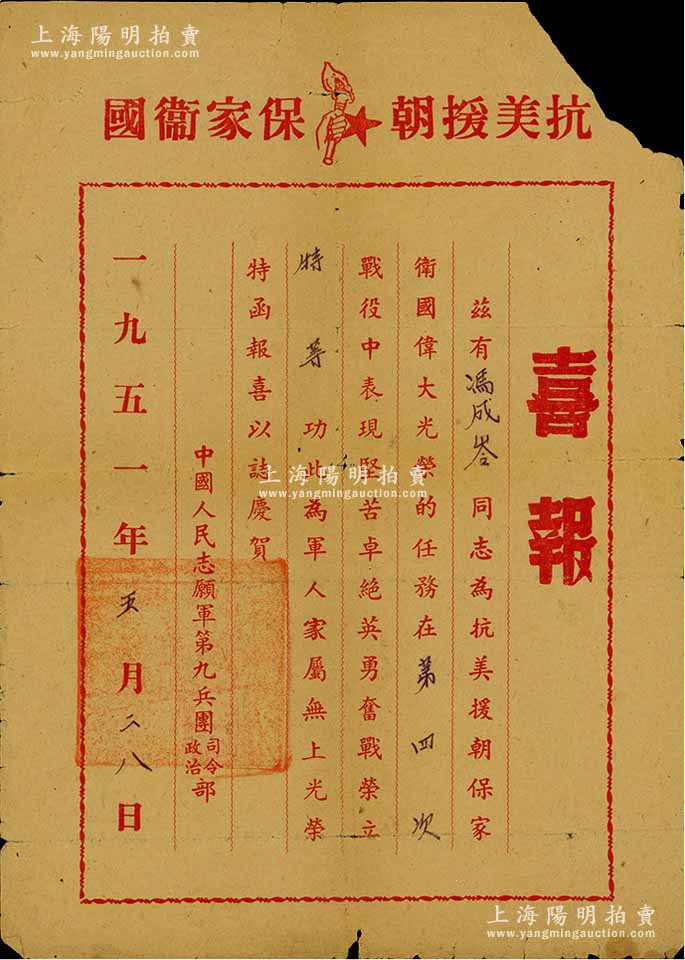 上海陽明拍賣
www.yangmingauction.com
抗美援朝 保家衞國
喜報
茲有馮成岺同志為抗美援朝保家
衛國偉大光榮的任務在第四次
戰役中表現堅苦卓絕英勇奮戰榮立
特等功此為軍人家屬無上光榮
特函報喜以誌慶賀
中國人民志願軍第九兵團司令政治部
一九五一年五月二八日
上海陽明拍賣
www.yangmingauction.com
上海陽明拍賣
www.yangmingauction.com